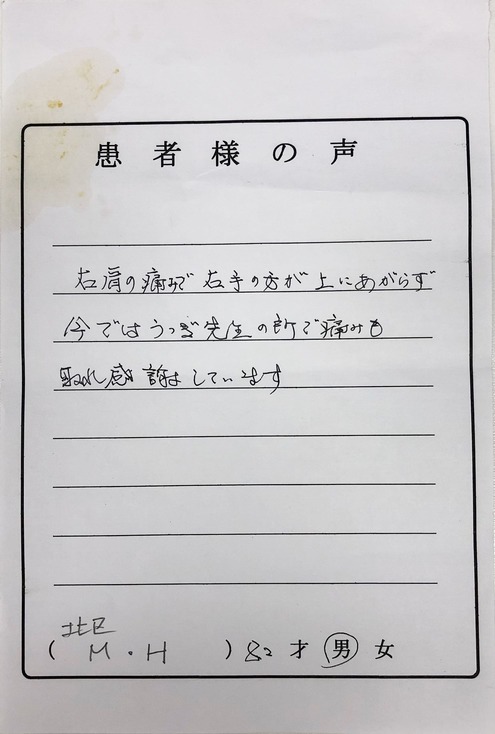 患者様の声
右肩の痛みで右手の方が上にあがらず
今ではうつぎ先生の所で痛みも
取れ感謝しています
北区
(M.H)82才男女